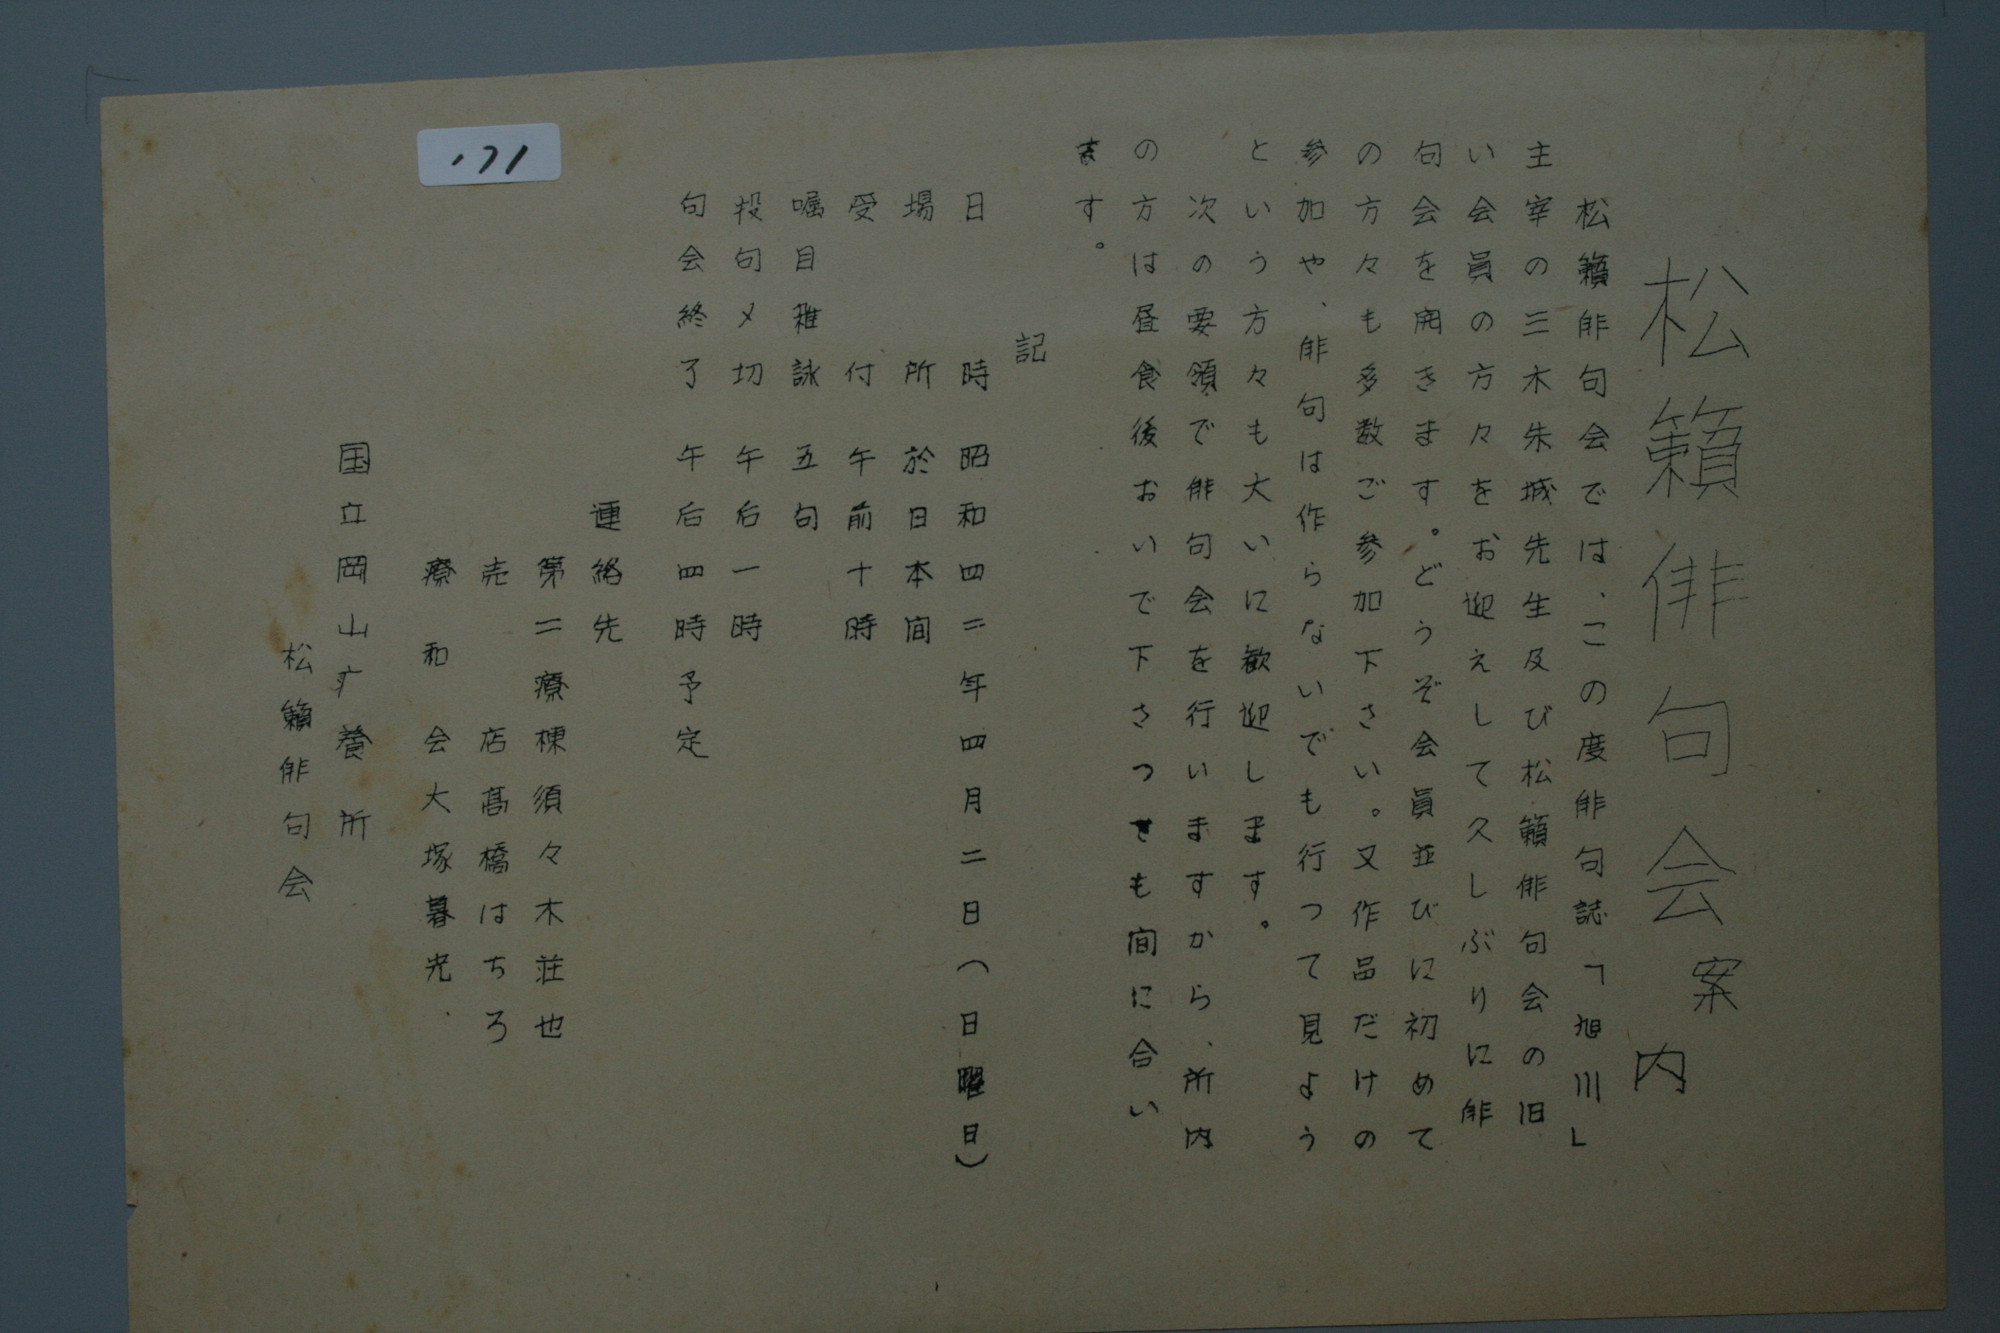 松籟俳句会案内
松籟俳句会では、この度俳句誌「旭川」
主宰の三木朱城先生及び松籟俳句会の旧
い会員の方々をお迎えして久しぶりに俳
句会を開きます。どうぞ会員並びに初めて
の方々も多数ご参加下さい。又作品だけの
参加や、俳句は作らないでも行つて見よう
という方々も大いに歓迎します。
次の要領で俳句会を行いますから、所内
の方は昼食後おいで下さつても間に合い
ます。
記
日時 昭和四二年四月二日(日曜日)
場所 於日本間
受付 午前十時
嘱目雑詠 五句
投句〆切 午后一時
句会終了 午后四時予定
連絡先
第二療棟須々木荘也
売店高橋はちろ
療和会大塚暮光.
国立岡山疗養所
松籟俳句会
171